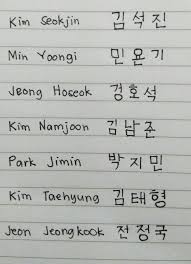 Kim Seokjin 김석진
Min Yoongi 민윤기
Jeong Hoseok 정호석
Kim Namjoon 김남준
Park Jimin 박지민
Kim Taehyung 김태형
Jeon Jeongkook 전정국